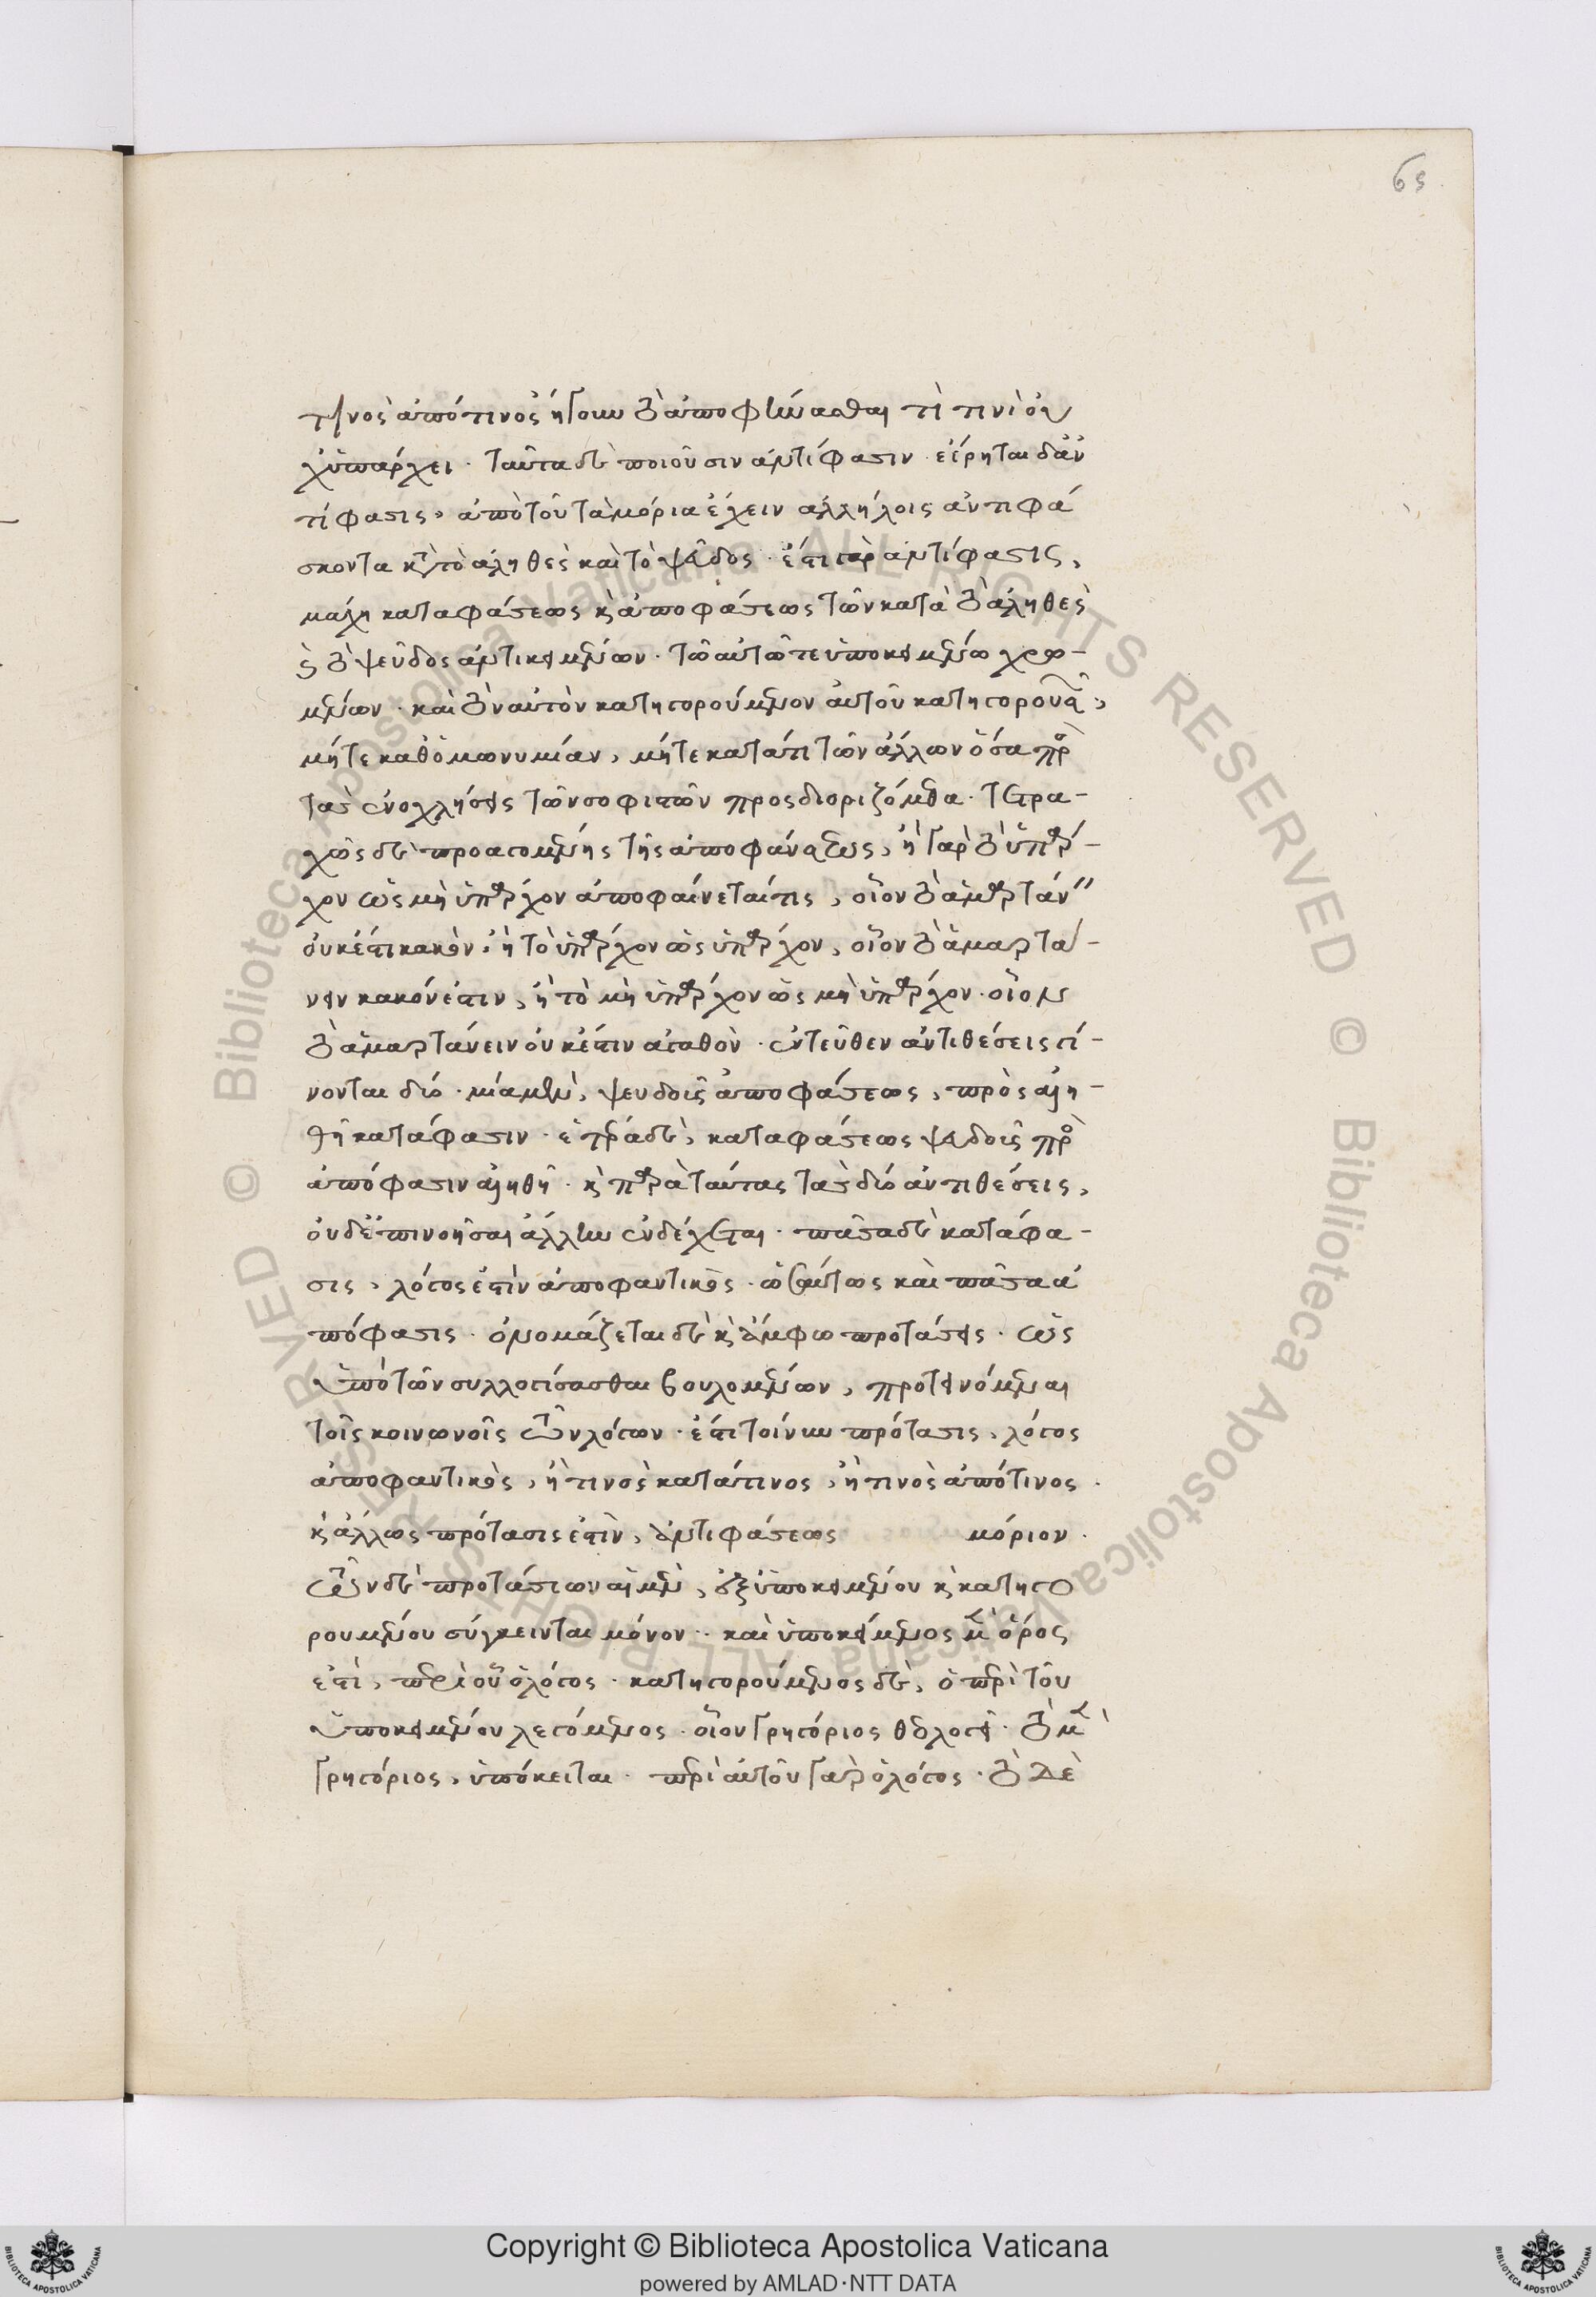 65
τινὸς ἀπό τινος ἤγουν τὸ ἀποφήνασθαι τί τινι οὐ
χ ὑπάρχει · ταῦτα δὲ ποιοῦσιν ἀντίφασιν · εἴρηται δ' ἀν
τίφασις, ἀπὸ τοῦ τὰ μόρια ἔχειν ἀλλήλοις ἀντιφά
σκοντα κατὰ τὸ ἀληθὲς καὶ τὸ ψεῦδος · ἔστι γὰρ ἀντίφασις,
μάχη καταφάσεως καὶ ἀποφάσεως τῶν κατὰ τὸ ἀληθὲς
καὶ τὸ ψεῦδος ἀντικειμένων · τῷ αὐτῷ τε ὑποκειμένῳ χρω-
μένων · καὶ τὸν αὐτὸν κατηγορούμενον αὐτοῦ κατηγορουσῶν,
μήτε καθ' ὁμωνυμίαν, μήτε κατά τι τῶν ἄλλων ὅσα πρὸς
τὰς ἐνοχλήσεις τῶν σοφιστῶν προσδιοριζόμεθα · τετρα-
χῶς δὲ προαγομένης τῆς ἀποφάνσεως, ἢ γὰρ τὸ ὑπάρ-
χον ὡς μὴ ὑπάρχον ἀποφαίνεταί τις, οἷον τὸ ἁμαρτάνειν
οὐκ ἔστι κακόν · ἢ τὸ ὑπάρχον ὡς ὑπάρχον, οἷον τὸ ἁμαρτά-
νειν κακόν ἐστιν, ἢ τὸ μὴ ὑπάρχον ὡς μὴ ὑπάρχον · οἷον
τὸ ἁμαρτάνειν οὐκ ἔστιν ἀγαθὸν · ἐντεῦθεν ἀντιθέσεις γί-
νονται δύο · μία μὲν, ψευδοῦς ἀποφάσεως, πρὸς ἀλη-
θῆ κατάφασιν · ἑτέρα δὲ, καταφάσεως ψευδοῦς πρὸς
ἀπόφασιν ἀληθῆ · καὶ παρὰ ταύτας τὰς δύο ἀντιθέσεις,
οὐδ' ἐπινοῆσαι ἄλλην ἐνδέχεται · πᾶσα δὲ κατάφα-
σις, λόγος ἐστὶν ἀποφαντικὸς · ὡσαύτως καὶ πᾶσα ἀ
πόφασις · ὀνομάζεται δὲ καὶ ἄμφω προτάσεις · ὡς
ὑπὸ τῶν συλλογίσασθαι βουλομένων, προτεινόμεναι
τοῖς κοινωνοῖς τῶν λόγων · ἔστι τοίνυν πρότασις, λόγος
ἀποφαντικὸς, ἤ τινος κατά τινος, ἤ τινος ἀπό τινος ·
καὶ ἄλλως πρότασις ἐστὶν, ἀντιφάσεως μόριον ·
τῶν δὲ προτάσεων αἱ μὲν, ἐξ ὑποκειμένου καὶ κατηγο
ρουμένου σύγκεινται μόνον · καὶ ὑποκείμενος μὲν ὅρος
ἐστὶ, περὶ οὗ ὁ λόγος · κατηγορούμενος δὲ, ὁ περὶ τοῦ
ὑποκειμένου λεγόμενος · οἷον Γρηγόριος θεολογεῖ · τὸ μὲν
Γρηγόριος, ὑπόκειται · περὶ αὐτοῦ γὰρ ὁ λόγος · τὸ δὲ
Copyright © Biblioteca Apostolica Vaticana
powered by AMLAD·NTT DATA